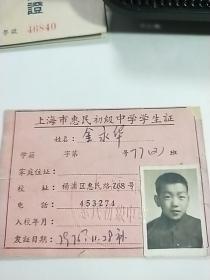 證
46840
上海市惠民初级中学学生证
姓名：金永华
学籍 字第 号 77(2)班
家庭住址：
校址：杨浦区惠民路768号
电话：453274
入校年月：
发证日期：1975.11.28补